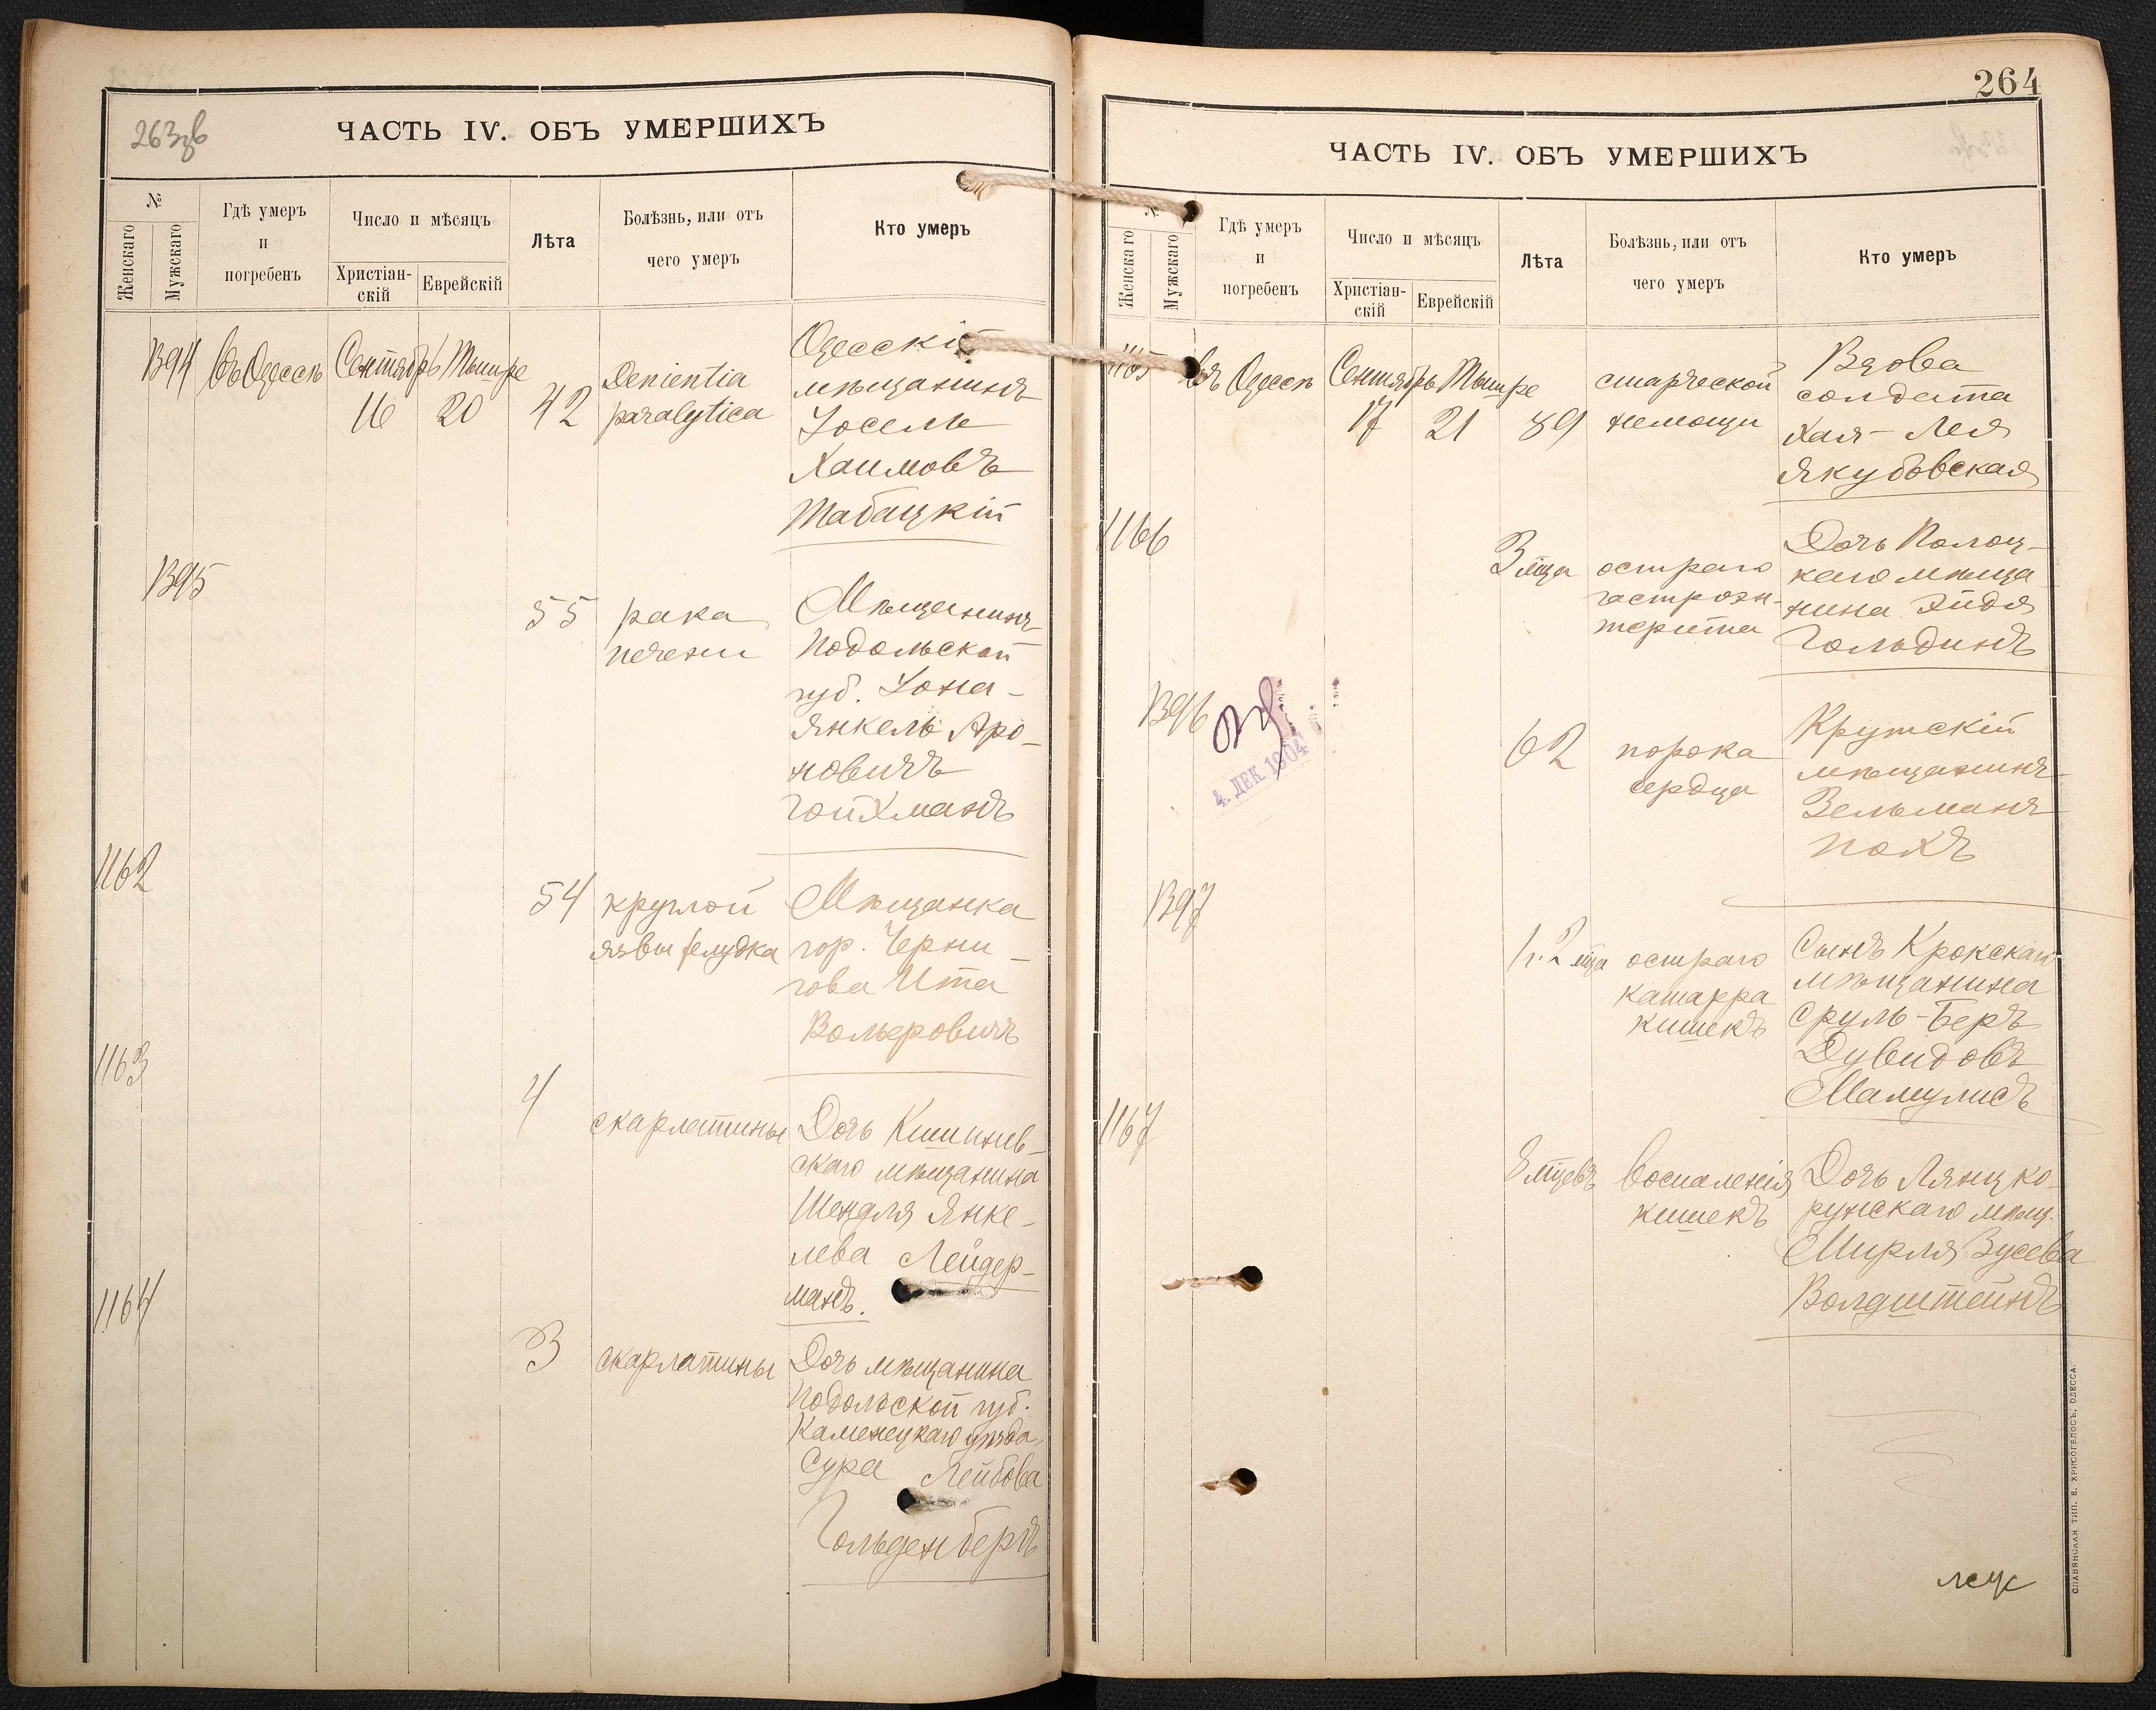 263зв
ЧАСТЬ IV. ОБЪ УМЕРШИХЪ
№
Женскаго
Мужскаго
Гдѣ умеръ
и
погребенъ
Число и мѣсяцъ
Христіан-
скій
Еврейскій
Лѣта
Болѣзнь, или отъ
чего умеръ
Кто умеръ
1394
Въ Одессѣ
Сентябрь
16
Тишре
20
42
Dementia
paralytica
Одесскій
мѣщанинъ
Іосель
Хаимовъ
Табацкій
1395
55
рака
печени
Мѣщанинъ
Подольской
губ. Іона-
Янкель Аро-
новичъ
Гойхманъ
1162
54
круглой
язвы желудка
Мѣщанка
гор. Черни-
гова Ита
Вольеровичъ
1163
4
скарлатины
Дочь Кишинев-
скаго мѣщанина
Шендля Янке-
лева Лейдер-
манъ.
1164
3
скарлатины
Дочь мѣщанина
Подольской губ.
Каменецкаго уѣзда
Сура Лейбова
Гольденбергъ
264
ЧАСТЬ IV. ОБЪ УМЕРШИХЪ
№
Женскаго
Мужскаго
Гдѣ умеръ
и
погребенъ
Число и мѣсяцъ
Христіан-
скій
Еврейскій
Лѣта
Болѣзнь, или отъ
чего умеръ
Кто умеръ
1165
Въ Одессѣ
Сентябрь
17
Тишре
21
89
старческой
немощи
Вдова
солдата
Хая-Лея
Якубовская
1166
3 мца
остраго
гастроэн-
терита
Дочь Полоц-
каго мѣща
нина Эйдя
Гольдинъ
1396
4. ДЕК. 1904
62
порока
сердца
Крутскій
мѣщанинъ
Зельманъ
Покъ
1397
1 г. 2 мца
остраго
катарра
кишекъ
Сынъ Крокскаго
мѣщанина
Сруль-Беръ
Дувидовъ
Мамулисъ
1167
8 мцевъ
воспаленія
кишекъ
Дочь Лянцко-
рунскаго мѣщ.
Мирля Зусева
Волдштейнъ
СЛАВЯНСКАЯ ТИП. Е. ХРИСОГЕЛОСЪ, ОДЕССА.